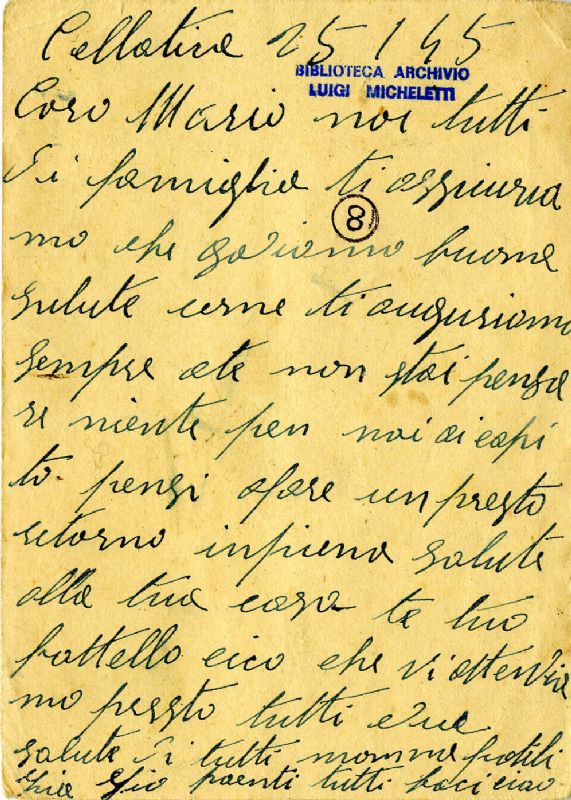 Cellatica 25 / 1 45
BIBLIOTECA ARCHIVIO
LUIGI MICHELETTI
Caro Mario noi tutti
di famiglia ti assicuria
8
mo che godiamo buona
salute come ti auguriamo
sempre ate non stai pensa
re niente per noi ai capi
to pensi afare un presto
ritorno in piena salute
alla tua casa te tuo
fattello cico che vi attendia
mo presto tutti e due
salute di tutti mamma fratili
zia zio paenti tutti baci ciao